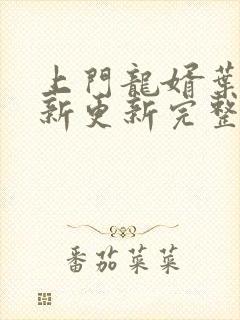 上門龍婿葉
新更新完整
番茄菜菜